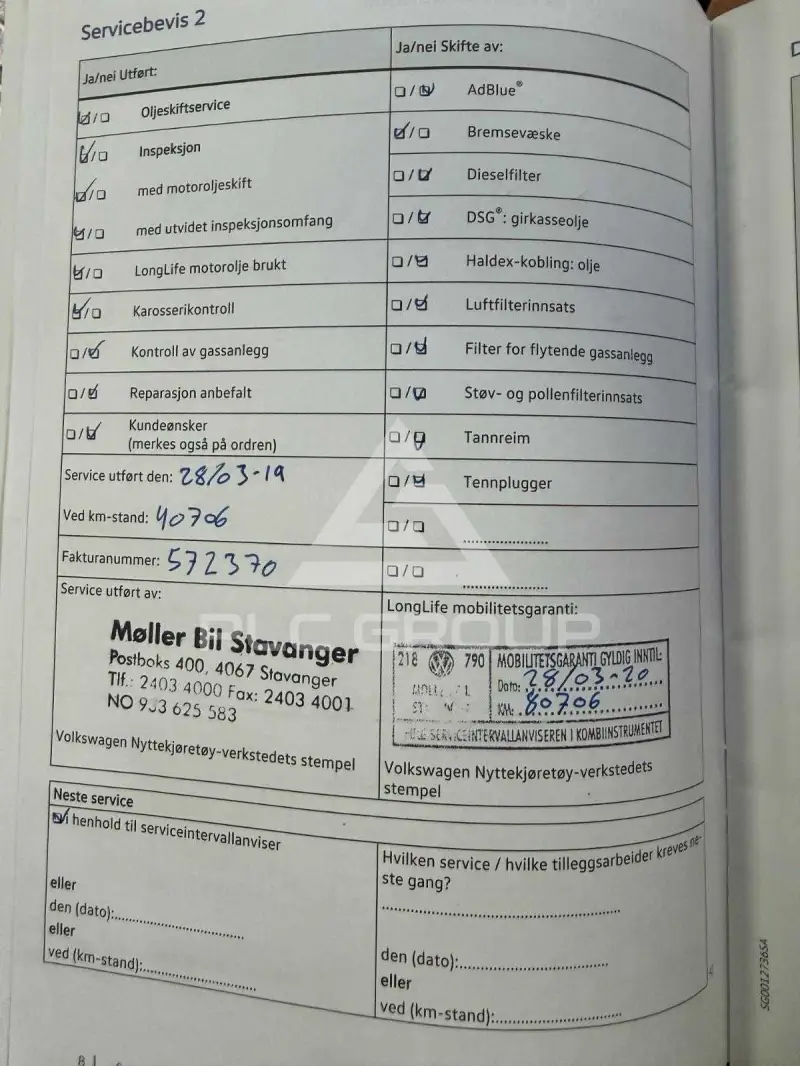 Servicebevis 2
Ja/nei Utført:
Oljeskiftservice
Inspeksjon
med motoroljeskift
med utvidet inspeksjonsomfang
LongLife motorolje brukt
Karosserikontroll
Kontroll av gassanlegg
Reparasjon anbefalt
Kundeønsker
(merkes også på ordren)
Service utført den: 28/03-19
Ved km-stand: 40706
Fakturanummer: 572370
Ja/nei Skifte av:
AdBlue®
Bremsevæske
Dieselfilter
DSG®: girkasseolje
Haldex-kobling: olje
Luftfilterinnsats
Filter for flytende gassanlegg
Støv- og pollenfilterinnsats
Tannreim
Tennplugger
Service utført av:
Møller Bil Stavanger
Postboks 400, 4067 Stavanger
Tlf.: 2403 4000 Fax: 2403 4001
NO 933 625 583
Volkswagen Nyttekjøretøy-verkstedets stempel
LongLife mobilitetsgaranti:
218 790 MOBILITETSGARANTI GYLDIG INNTIL:
Dato: 28/03-20
KM: 80706
SERVICEINTERVALLANVISEREN I KOMBIINSTRUMENTET
Volkswagen Nyttekjøretøy-verkstedets
stempel
PLC GROUP
Neste service
i henhold til serviceintervallanviser
eller
den (dato):
eller
ved (km-stand):
Hvilken service / hvilke tilleggsarbeider kreves ne-
ste gang?
den (dato):
eller
ved (km-stand):
SG0012736SA
8